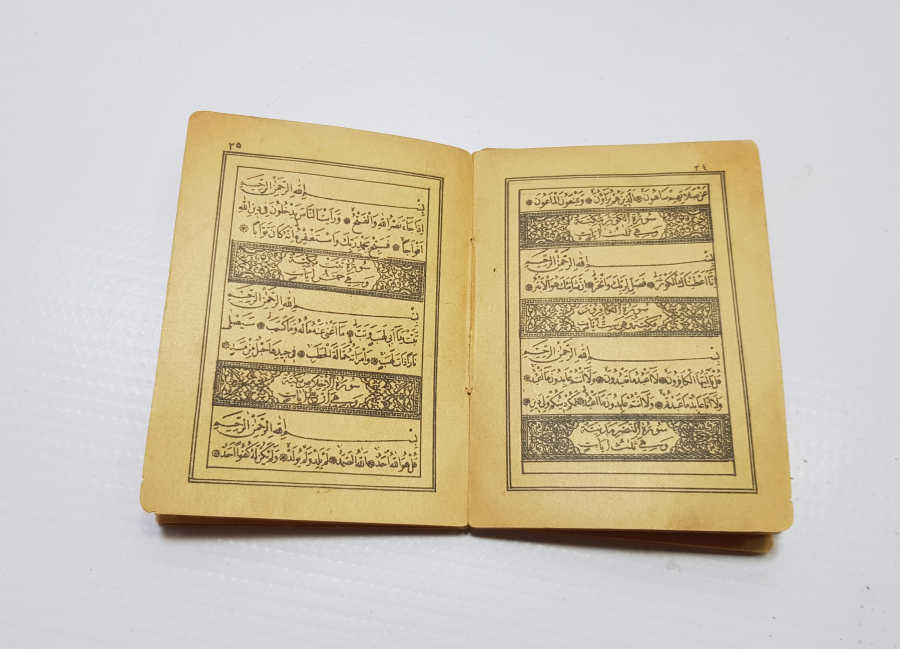 ٢٤
عَنْ صَلَاتِهِمْ سَاهُونَ ۞ اَلَّذِينَ هُمْ يُرَاؤُنَ ۞ وَيَمْنَعُونَ الْمَاعُونَ ۞
سورة الكوثر مكية
وهي ثلث آيات
بِسْمِ اللهِ الرَّحْمٰنِ الرَّحِيمِ
اِنَّا اَعْطَيْنَاكَ الْكَوْثَرَ ۞ فَصَلِّ لِرَبِّكَ وَانْحَرْ ۞ اِنَّ شَانِئَكَ هُوَ الْاَبْتَرُ ۞
سورة الكافرون
مكية وهي ست آيات
بِسْمِ اللهِ الرَّحْمٰنِ الرَّحِيمِ
قُلْ يَا اَيُّهَا الْكَافِرُونَ ۞ لَا اَعْبُدُ مَا تَعْبُدُونَ ۞ وَلَا اَنْتُمْ عَابِدُونَ مَا اَعْبُدُ ۞
وَلَا اَنَا عَابِدٌ مَا عَبَدْتُمْ ۞ وَلَا اَنْتُمْ عَابِدُونَ مَا اَعْبُدُ ۞ لَكُمْ دِينُكُمْ وَلِيَ دِينِ ۞
سورة النصر مدنية
وهي ثلث آيات
٢٥
بِسْمِ اللهِ الرَّحْمٰنِ الرَّحِيمِ
اِذَا جَاءَ نَصْرُ اللهِ وَالْفَتْحُ ۞ وَرَاَيْتَ النَّاسَ يَدْخُلُونَ فِي دِينِ اللهِ
اَفْوَاجًا ۞ فَسَبِّحْ بِحَمْدِ رَبِّكَ وَاسْتَغْفِرْهُ اِنَّهُ كَانَ تَوَّابًا ۞
سورة تبت مكية
وهي خمس آيات
بِسْمِ اللهِ الرَّحْمٰنِ الرَّحِيمِ
تَبَّتْ يَدَا اَبِي لَهَبٍ وَتَبَّ ۞ مَا اَغْنٰى عَنْهُ مَالُهُ وَمَا كَسَبَ ۞ سَيَصْلٰى
نَارًا ذَاتَ لَهَبٍ ۞ وَامْرَاَتُهُ حَمَّالَةَ الْحَطَبِ ۞ فِي جِيدِهَا حَبْلٌ مِنْ مَسَدٍ ۞
سورة الاخلاص مكية
وهي اربع آيات
بِسْمِ اللهِ الرَّحْمٰنِ الرَّحِيمِ
قُلْ هُوَ اللهُ اَحَدٌ ۞ اَللهُ الصَّمَدُ ۞ لَمْ يَلِدْ وَلَمْ يُولَدْ ۞ وَلَمْ يَكُنْ لَهُ كُفُوًا اَحَدٌ ۞